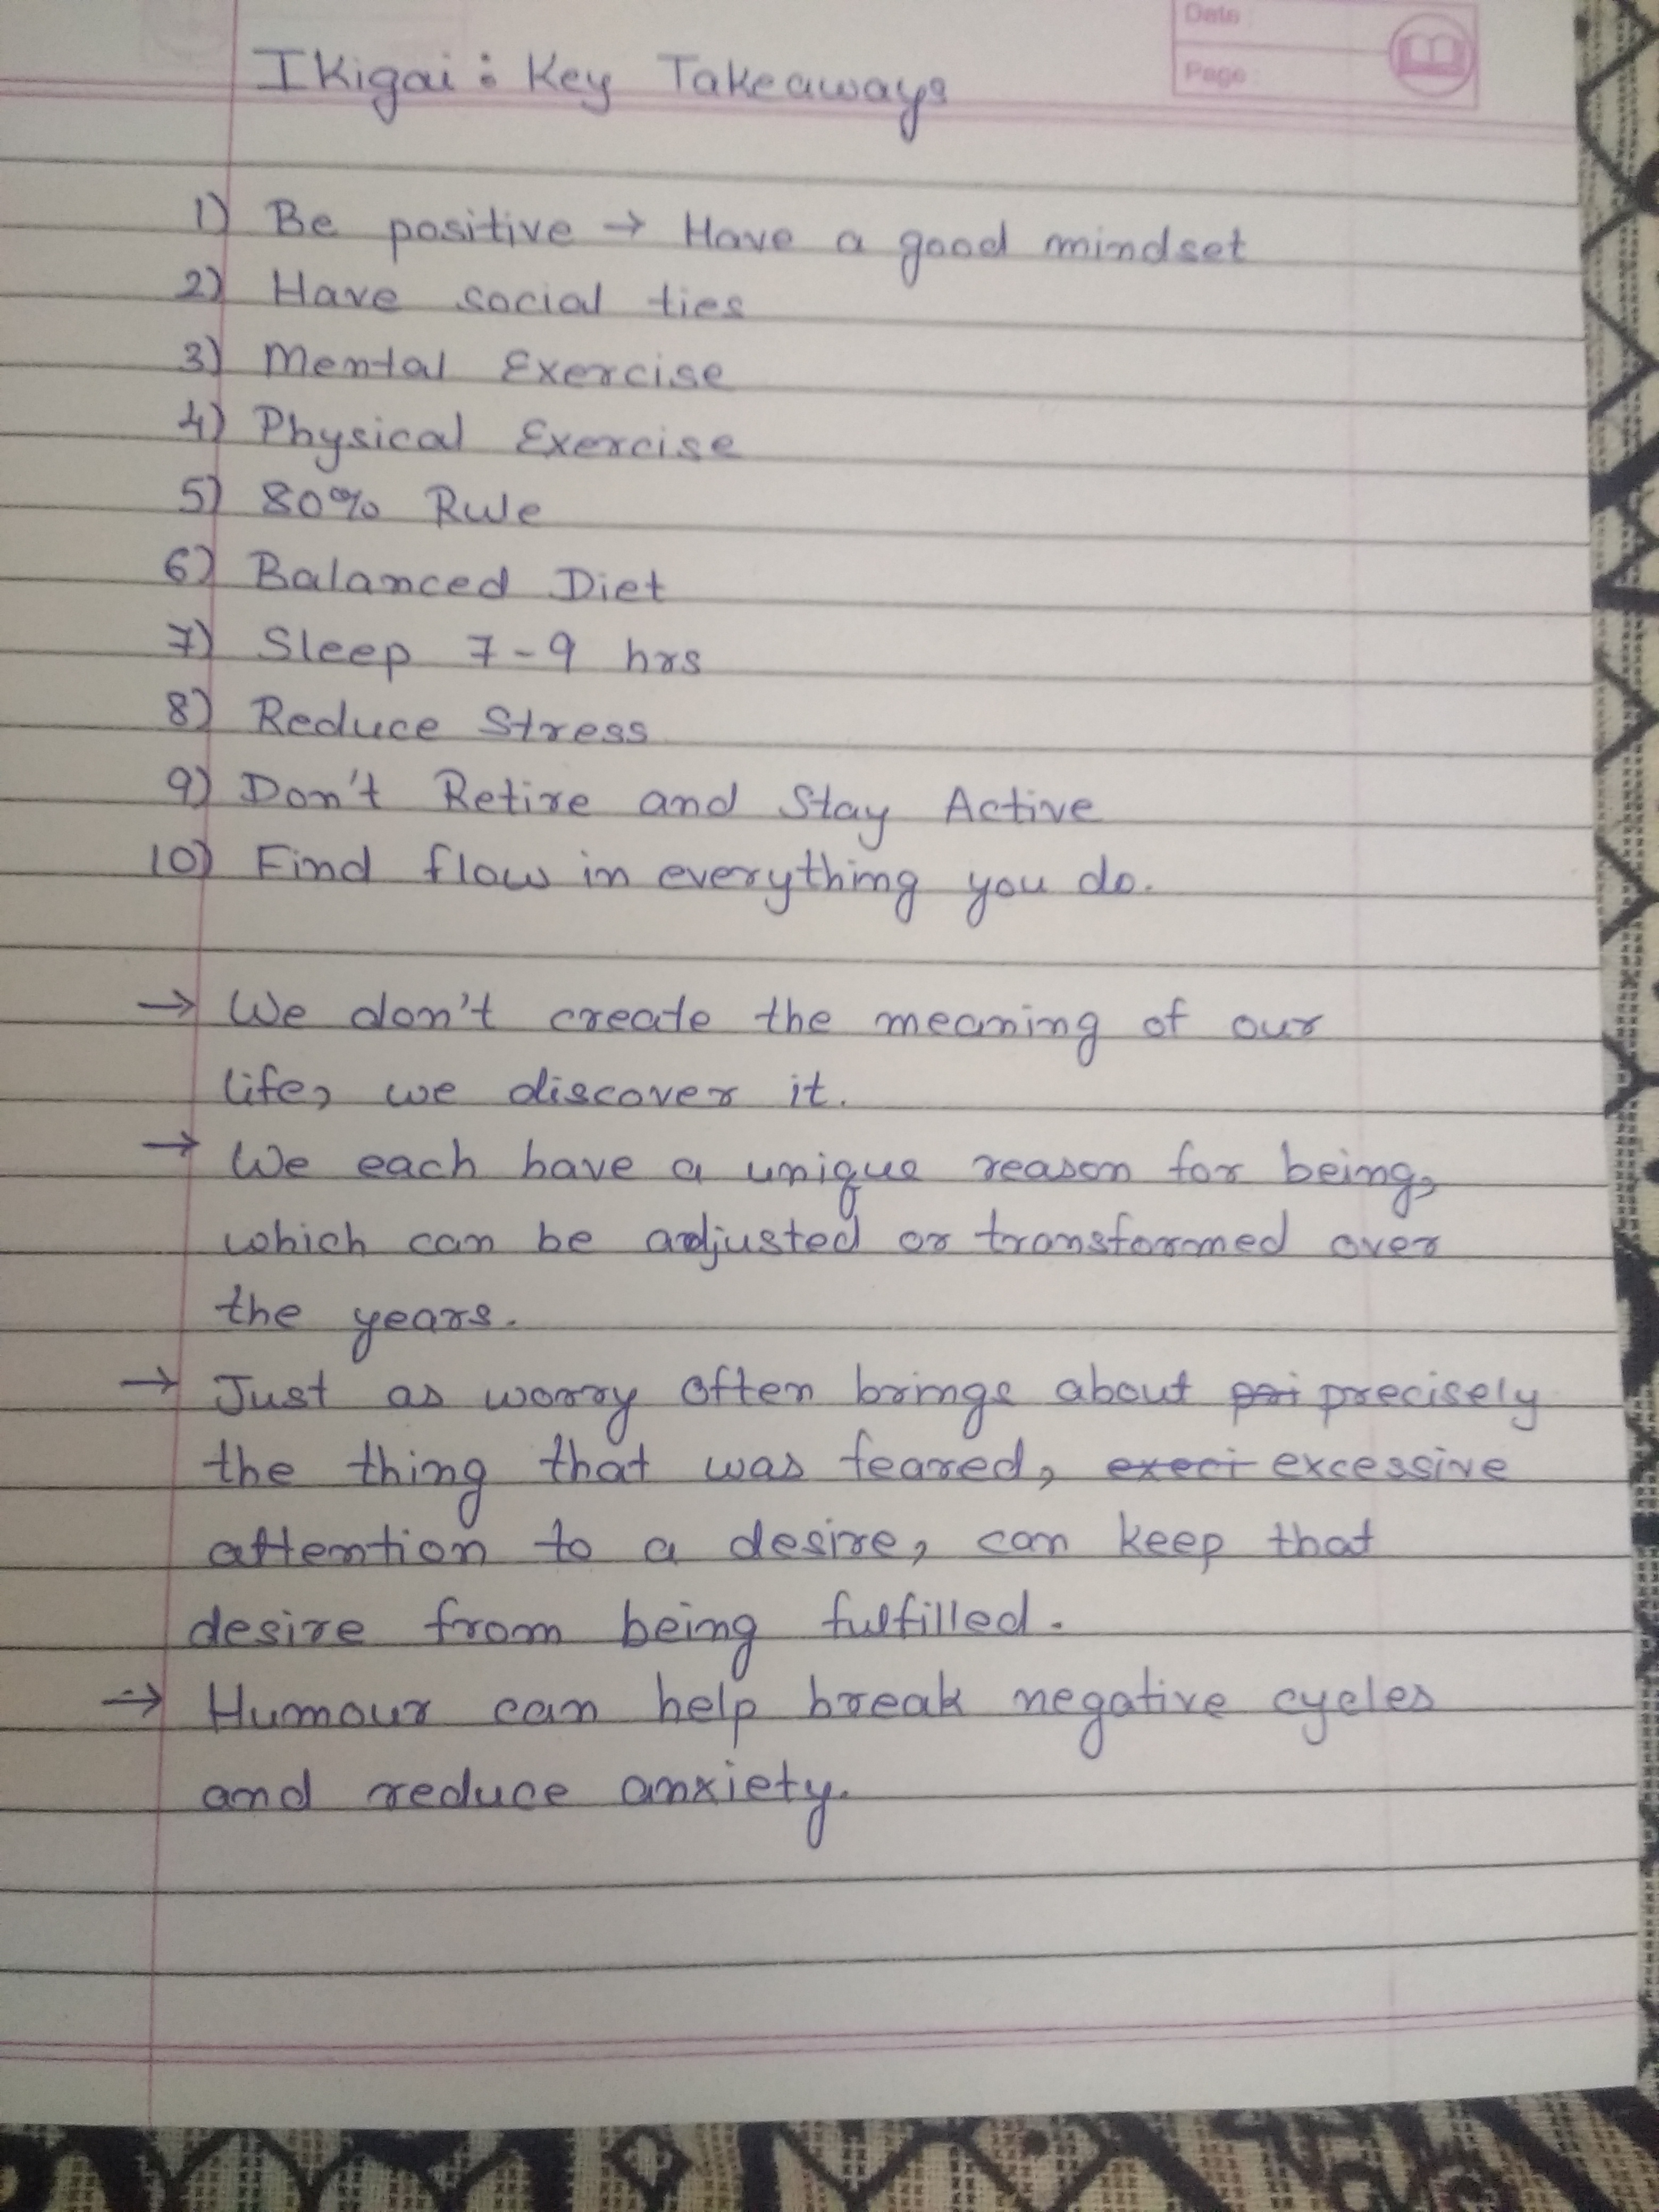 Date :
Page :
Ikigai : Key Takeaways
1) Be positive → Have a good mindset
2) Have social ties
3) Mental Exercise
4) Physical Exercise
5) 80% Rule
6) Balanced Diet
7) Sleep 7-9 hrs
8) Reduce Stress
9) Don't Retire and Stay Active
10) Find flow in everything you do.
→ We don't create the meaning of our
life, we discover it.
→ We each have a unique reason for being,
which can be adjusted or transformed over
the years.
→ Just as worry often brings about pri precisely
the thing that was feared, execi excessive
attention to a desire, can keep that
desire from being fulfilled.
→ Humour can help break negative cycles
and reduce anxiety.